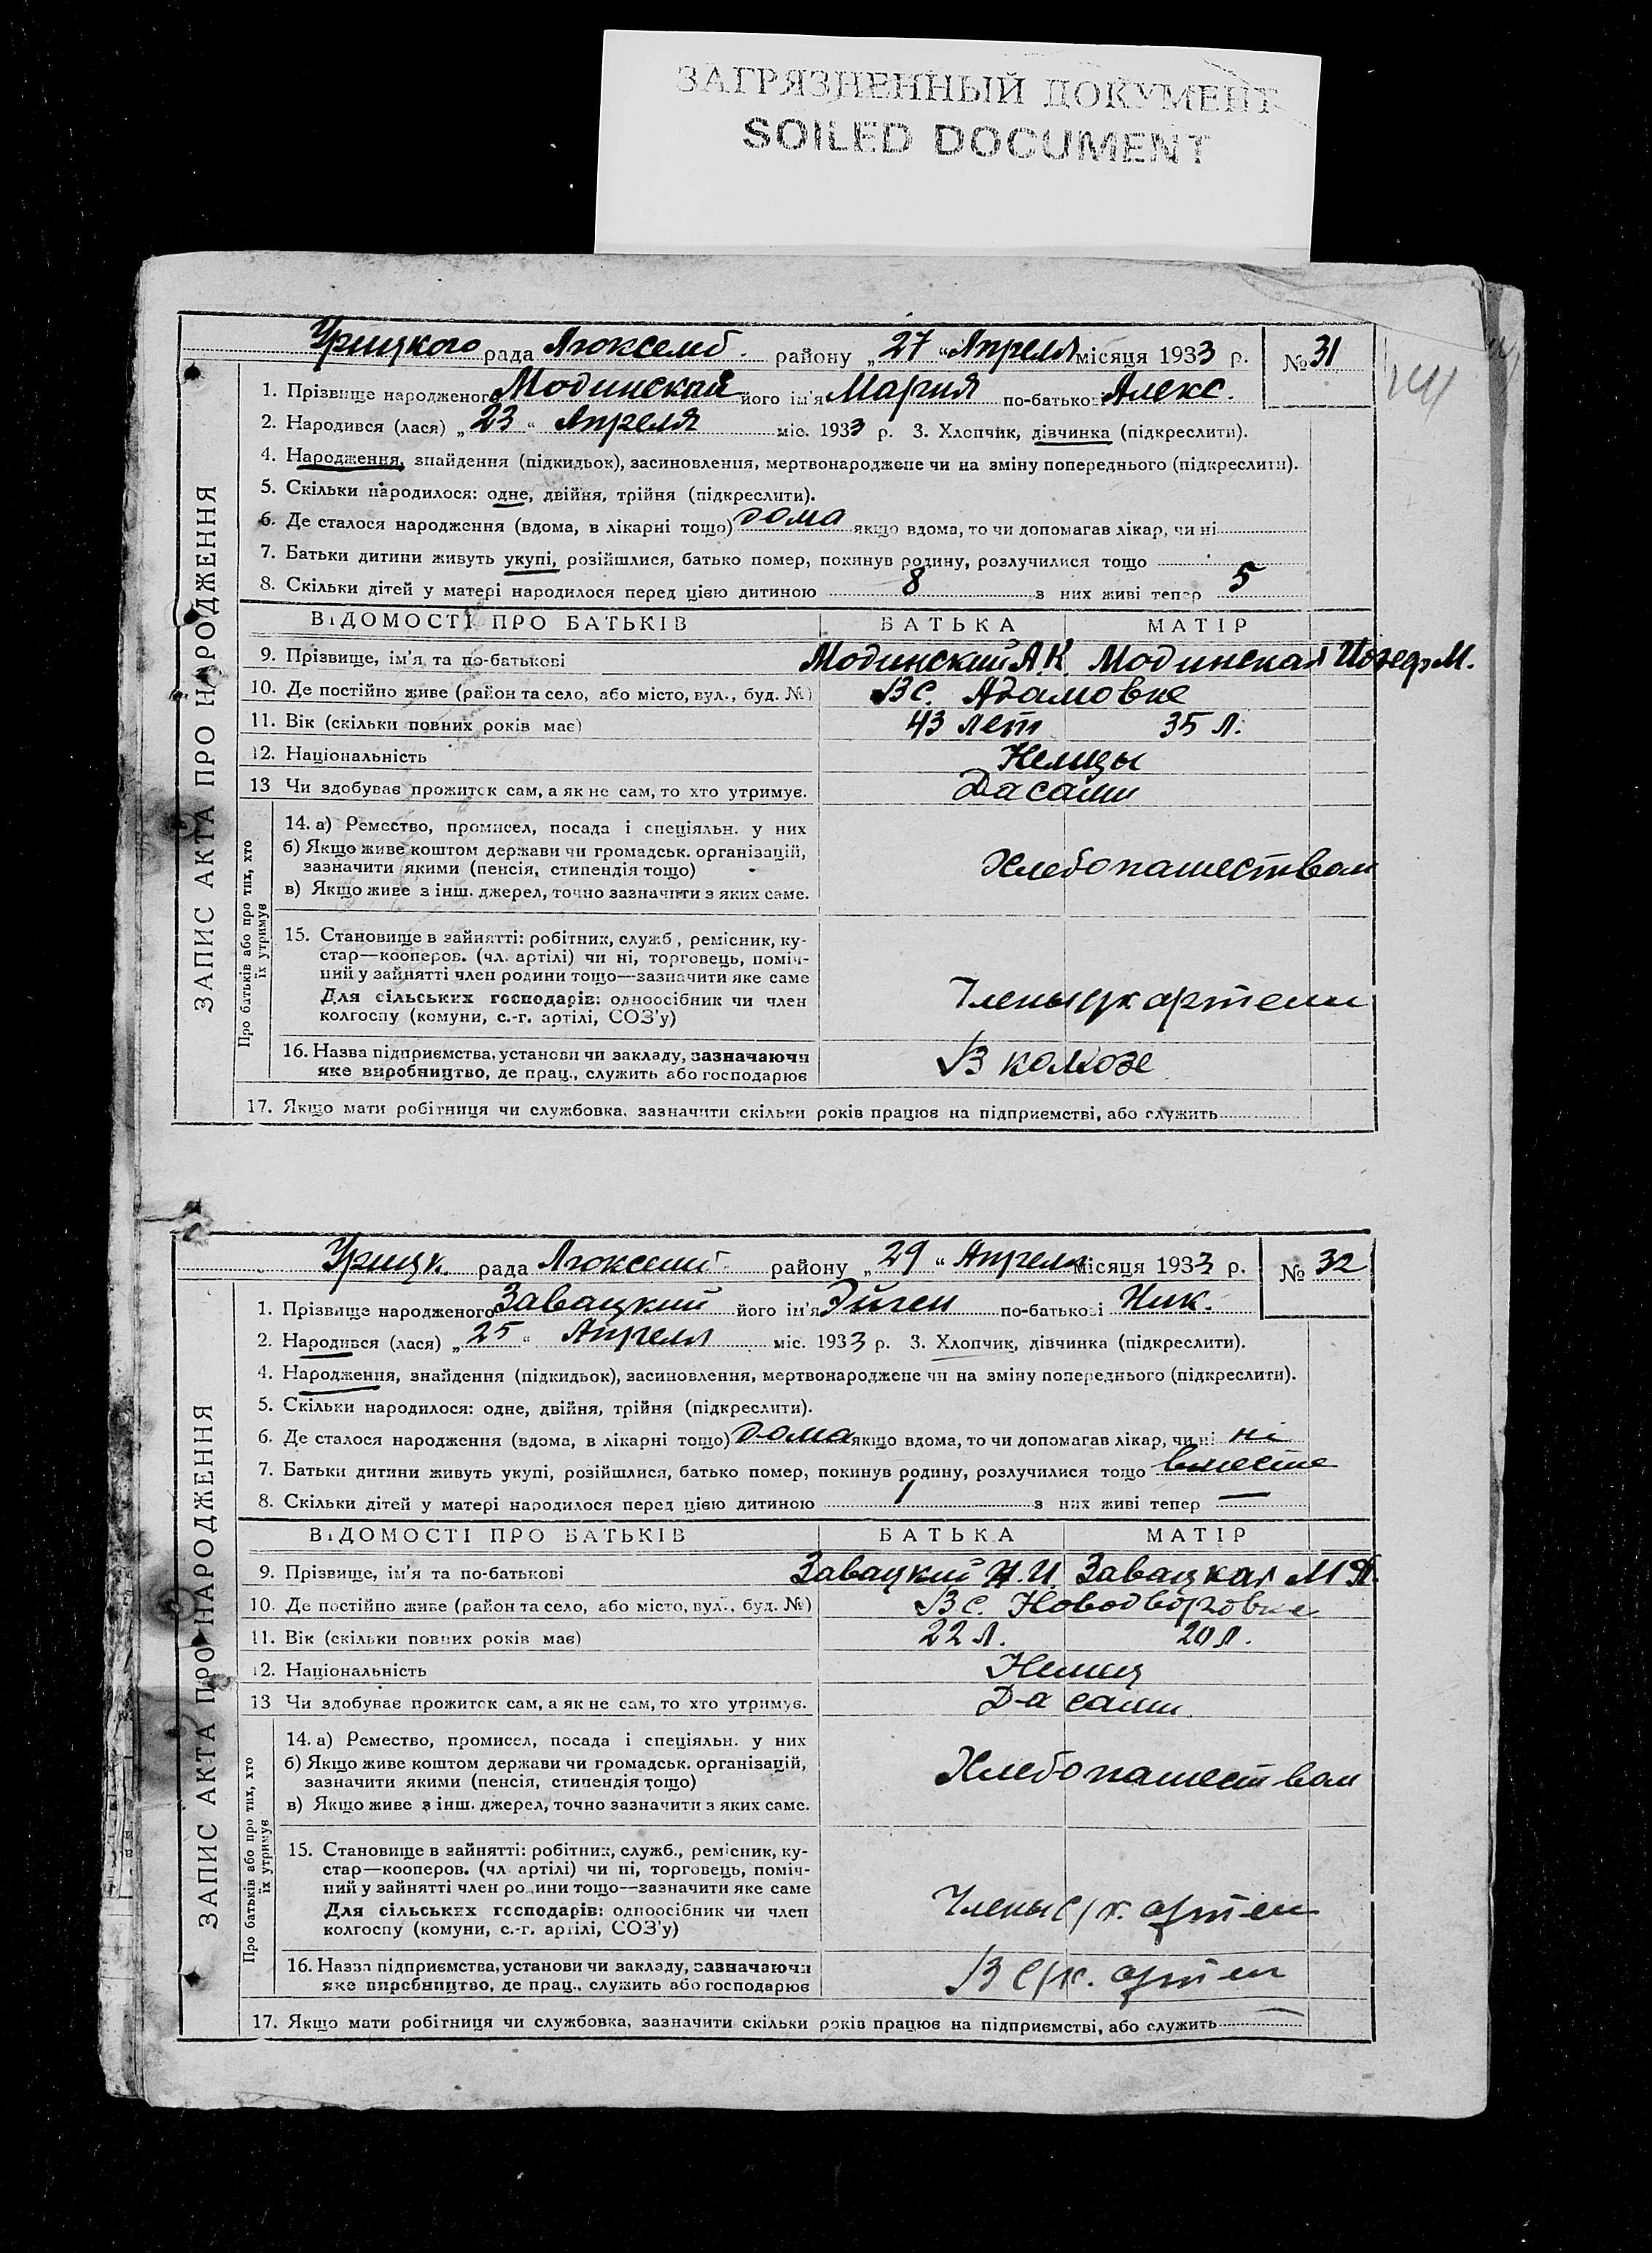 ЗАГРЯЗНЕННЫЙ ДОКУМЕНТ
SOILED DOCUMENT
Урицкого рада Люксемб. району „27“ Апреля місяця 1933 р. № 31
1. Прізвище народженого Модинская його ім'я Мария по-батькові Алекс.
2. Народився (лася) „23“ Апреля міс. 1933 р. 3. Хлопчик, дівчинка (підкреслити).
4. Народження, знайдення (підкидьок), засиновлення, мертвонароджене чи на зміну попереднього (підкреслити).
5. Скільки народилося: одне, двійня, трійня (підкреслити).
6. Де сталося народження (вдома, в лікарні тощо) дома якщо вдома, то чи допомагав лікар, чи ні
7. Батьки дитини живуть укупі, розійшлися, батько помер, покинув родину, розлучилися тощо
8. Скільки дітей у матері народилося перед цією дитиною 8 з них живі тепер 5
ВІДОМОСТІ ПРО БАТЬКІВ БАТЬКА МАТІР
9. Прізвище, ім'я та по-батькові Модинский А.К. Модинская М.
10. Де постійно живе (район та село, або місто, вул., буд. №) В с. Адамовке
11. Вік (скільки повних років має) 43 лет 35 л.
12. Національність Немцы
13 Чи здобуває прожиток сам, а як не сам, то хто утримує. Да сами
14. а) Ремество, промисел, посада і спеціяльн. у них
б) Якщо живе коштом держави чи громадськ. організацій,
зазначити якими (пенсія, стипендія тощо) Хлебопашеством
в) Якщо живе з інш. джерел, точно зазначити з яких саме.
15. Становище в зайнятті: робітник, служб., ремісник, ку-
стар—кооперов. (чл. артілі) чи ні, торговець, поміч-
ний у зайнятті член родини тощо—зазначити яке саме
Для сільських господарів: одноосібник чи член Члены артели
колгоспу (комуни, с.-г. артілі, СОЗ'у)
16. Назва підприємства, установи чи закладу, зазначаючи В колхозе
яке виробництво, де прац., служить або господарює
17. Якщо мати робітниця чи службовка, зазначити скільки років працює на підприємстві, або служить
ЗАПИС АКТА ПРО НАРОДЖЕННЯ
Про батьків або про тих, хто
їх утримує
Урицк. рада району „29“ Апреля місяця 1933 р. № 32
1. Прізвище народженого Завацкий його ім'я Эйген по-батькові Ник.
2. Народився (лася) „25“ Апреля міс. 1933 р. 3. Хлопчик, дівчинка (підкреслити).
4. Народження, знайдення (підкидьок), засиновлення, мертвонароджене чи на зміну попереднього (підкреслити).
5. Скільки народилося: одне, двійня, трійня (підкреслити).
6. Де сталося народження (вдома, в лікарні тощо) дома якщо вдома, то чи допомагав лікар, чи ні ні
7. Батьки дитини живуть укупі, розійшлися, батько помер, покинув родину, розлучилися тощо вместе
8. Скільки дітей у матері народилося перед цією дитиною 1 з них живі тепер —
ВІДОМОСТІ ПРО БАТЬКІВ БАТЬКА МАТІР
9. Прізвище, ім'я та по-батькові Завацкий Н.И. Завацкая М
10. Де постійно живе (район та село, або місто, вул., буд. №) В с. Новодворовке
11. Вік (скільки повних років має) 22 л. 20 л.
12. Національність Немец
13 Чи здобуває прожиток сам, а як не сам, то хто утримує. Да сами
14. а) Ремество, промисел, посада і спеціяльн. у них
б) Якщо живе коштом держави чи громадськ. організацій,
зазначити якими (пенсія, стипендія тощо) Хлебопашеством
в) Якщо живе з інш. джерел, точно зазначити з яких саме.
15. Становище в зайнятті: робітник, служб., ремісник, ку-
стар—кооперов. (чл. артілі) чи ні, торговець, поміч-
ний у зайнятті член родини тощо—зазначити яке саме
Для сільських господарів: одноосібник чи член Члены с/х. артели
колгоспу (комуни, с.-г. артілі, СОЗ'у)
16. Назва підприємства, установи чи закладу, зазначаючи В с/х. артели
яке виробництво, де прац., служить або господарює
17. Якщо мати робітниця чи службовка, зазначити скільки років працює на підприємстві, або служить —
ЗАПИС АКТА ПРО НАРОДЖЕННЯ
Про батьків або про тих, хто
їх утримує